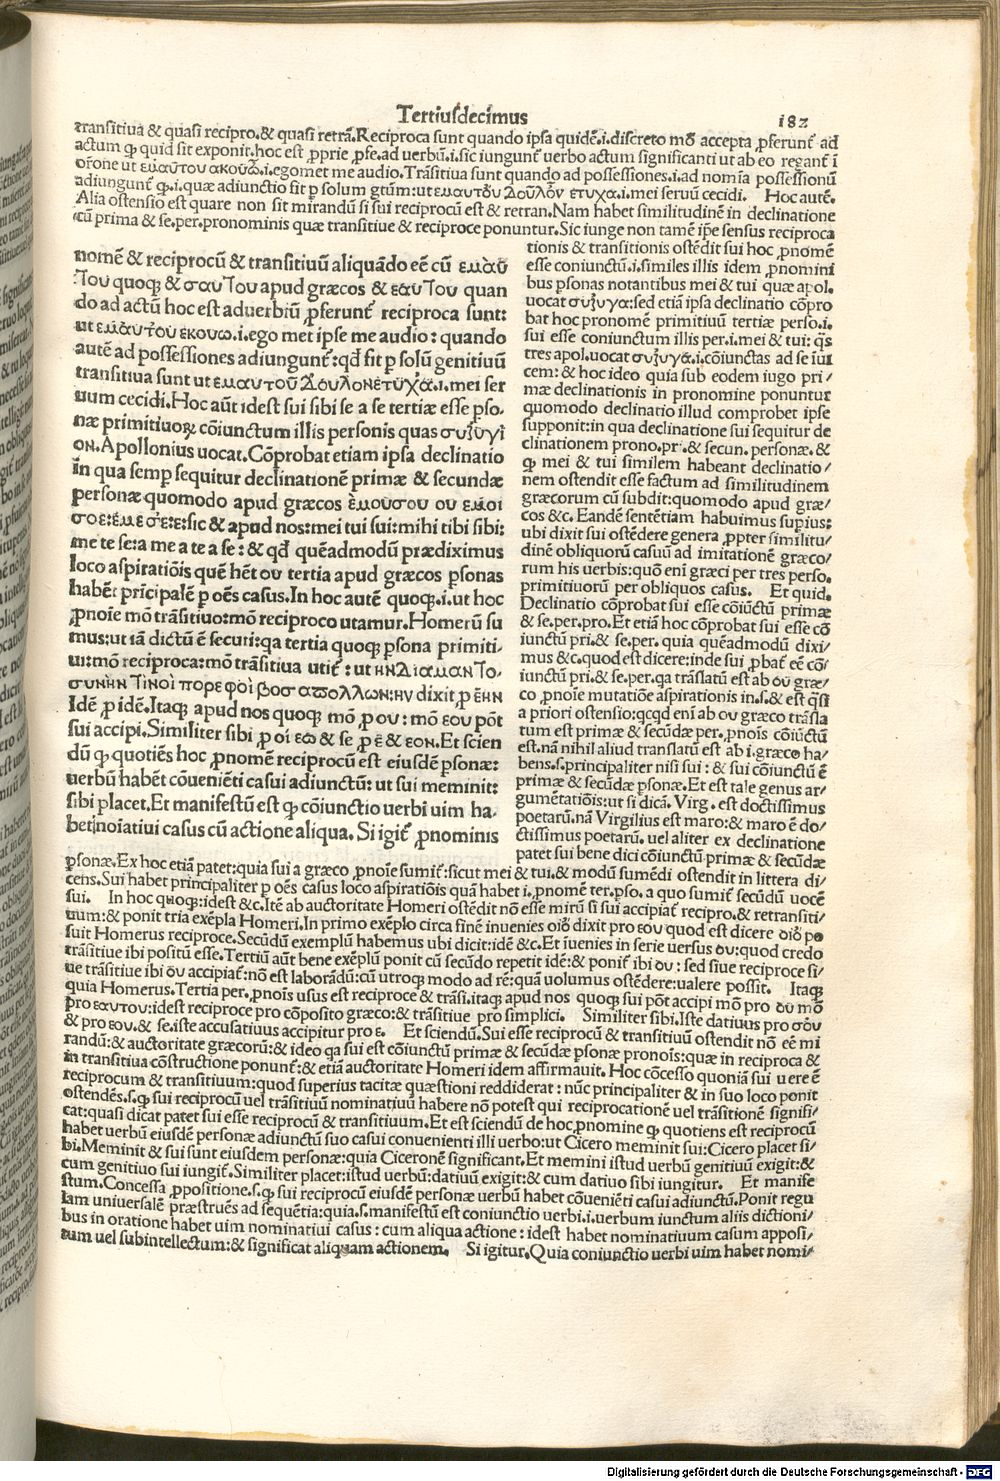 Tertiusdecimus
182
transitiua & quasi recipro.& quasi retrā.Reciproca sunt quando ipsa quidē.i.discreto mō accepta ꝓferunt᷒ ad
actum ꝙ quid sit exponit.hoc est ꝓprie ꝓfe.ad uerbū.i.sic iungunt᷒ uerbo actum significanti ut ab eo regant᷒ ī
orōne ut εμαυτου ακουω.i.egomet me audio.Trāsitiua sunt quando ad possessiones.i.ad nomīa possessionū
adiungunt᷒ ꝙ.i.quæ adiunctio sit p solum gtūm:ut εμαυτου Δουλον ετυχα.i.mei seruū cecidi. Hoc autē.
Alia ostensio est quare non sit mirandū si sui reciprocū est & retran.Nam habet similitudinē in declinatione
cū prima & se.per.pronominis quæ transitiue & reciproce ponuntur.Sic iunge non tamē ipse sensus reciproca
nomē & reciprocū & transitiuū aliquādo eē cū εμαυ
Του quoqꝫ & σαυΤου apud græcos & εαυΤου quan
do ad actū hoc est aduerbiū ꝓferunt᷒ reciproca sunt:
ut εμαυτου εκουω.i.ego met ipse me audio:quando
autē ad possessiones adiungunt᷒:qd̄ fit p solū genitiuū
transitiua sunt ut εμαυτου Δουλονετυχα.i.mei ser
uum cecidi.Hoc aūt idest sui sibi se a se tertiæ esse pso.
næ primitiuoꝝ cōiunctum illis personis quas συζυγι
ον.Apollonius uocat.Cōprobat etiam ipsa declinatio
in qua semp sequitur declinationē primæ & secundæ
personæ quomodo apud græcos ἐμουσου ου εμοι
σοε:εμε σε:ε:sic & apud nos:mei tui sui:mihi tibi sibi:
me te se:a me a te a se:& qd̄ quēadmodū prædiximus
loco aspiratiōis quē hēt ου tertia apud græcos psonas
habēt prīcipalē p oēs casus.In hoc autē quoqꝫ.i.ut hoc
ꝓnoīe mō trāsitiuo:mō reciproco utamur.Homerū su
mus:ut iā dictū ē securi:qa tertia quoqꝫ psona primiti.
ui:mō reciproca:mō trāsitiua utit᷒:ut ηνΔιαμανΤο.
συνην Τινοι πορε φοι βοσ απολλων:ην dixit ꝓ εην
Idē ꝓ idē.Itaqꝫ apud nos quoqꝫ mō ꝓ ου:mō εου pōt
sui accipi.Similiter sibi ꝓ οι εω & se ꝓ ε & εον.Et scien
dū ꝙ quotiēs hoc ꝓnomē reciprocū est eiusdē psonæ:
uerbū habēt cōueniēti casui adiunctū:ut sui meminit:
sibi placet.Et manifestū est ꝙ cōiunctio uerbi uim ha.
bet noīatiui casus cū actione aliqua. Si igit᷒ ꝓnominis
tionis & transitionis ostēdit sui hoc ꝓnomē
esse coniunctū.i.similes illis idem ꝓnomini
bus psonas notantibus mei & tui quæ apol.
uocat συζυγα:sed etiā ipsa declinatio cōpro
bat hoc pronomē primitiuū tertiæ perso.i.
sui esse coniunctum illis per.i.mei & tui: q̄s
tres apol.uocat συζυγα.i.cōiunctas ad se iui
cem:& hoc ideo quia sub eodem iugo pri/
mæ declinationis in pronomine ponuntur
quomodo declinatio illud comprobet ipse
supponit:in qua declinatione sui sequitur de
clinationem prono.pr.& secun.personæ.&
ꝙ mei & tui similem habeant declinatio/
nem ostendit esse factum ad similitudinem
græcorum cū subdit:quomodo apud græ/
cos &c.Eandē sentētiam habuimus supius:
ubi dixit sui ostēdere genera ꝓpter similitu/
dinē obliquorū casuū ad imitationē græco/
rum his uerbis:quō enī græci per tres perso.
primitiuorū per obliquos casus. Et quid.
Declinatio cōprobat sui esse cōiūctū primæ
& se.per.pro.Et etiā hoc cōprobat sui esse cō
iunctū pri.& se.per. quia quēadmodū dixi/
mus &c.quod est dicere:inde sui ꝓbat᷒ eē cō/
iunctū pri.& se.per.qa trāslatū est ab ου græ/
co ꝓnoīe mutatiōe aspirationis in.s.& est q̄si
a priori ostensio:qcqd enī ab ου græco trāsla
tum est primæ & secūdæ per.ꝓnoīs cōiūctū
est.nā nihil aliud translatū est ab i.græco ha/
bens.s.principaliter nisi sui:& sui cōiunctū ē
primæ & secūdæ psonæ.Et est tale genus ar/
gumētatiōis:ut si dicā.Virg.est doctissimus
poetarū.nā Virgilius est maro:& maro ē do/
ctissimus poetarū.uel aliter ex declinatione
patet sui bene dici cōiunctū primæ & secūdæ
psonæ.Ex hoc etiā patet:quia sui a græco ꝓnoīe sumit᷒:sicut mei & tui.& modū sumēdi ostendit in littera di/
cens.Sui habet principaliter p oēs casus loco aspiratiōis quā habet i.ꝓnomē ter.pso.a quo sumit᷒ secūdū uocē
sui. In hoc quoqꝫ:idest &c.Itē ab auctoritate Homeri ostēdit nō esse mirū si sui accipiat᷒ recipro.& retransiti/
uum:& ponit tria exēpla Homeri.In primo exēplo circa finē inuenies οιō dixit pro εου quod est dicere οιō pο
suit Homerus reciproce.Secūdū exemplū habemus ubi dicit:idē &c.Et īuenies in serie uersus ου:quod credo
trāsitiue ibi positū esse.Tertiū aūt bene exēplū ponit cū secūdo repetit idē:& ponit᷒ ibi ου:sed siue reciproce si/
ue trāsitiue ibi ου accipiat᷒:nō est laborādū:cū utroqꝫ modo ad rē:quā uolumus ostēdere:ualere possit. Itaqꝫ
quia Homerus.Tertia per.ꝓnoīs usus est reciproce & trāsi.itaqꝫ apud nos quoqꝫ sui pōt accipi mō pro ου mō
pro εαυτου:idest reciproce pro cōposito græco:& trāsitiue pro simplici. Similiter sibi.Iste datiuus pro σου
& pro εου.& se.iste accusatiuus accipitur pro ε. Et sciendū.Sui esse reciprocū & transitiuū ostendit nō eē mi
randū:& auctoritate græcorū:& ideo qa sui est cōiunctū primæ & secūdæ psonæ pronoīs:quæ in reciproca &
in transitiua cōstructione ponunt᷒:& etiā auctoritate Homeri idem affirmauit. Hoc cōcesso quoniā sui uere ē
reciprocum & transitiuum:quod superius tacitæ quæstioni reddiderat:nūc principaliter & in suo loco ponit
ostendēs.s.ꝙ sui reciprocū uel trāsitiuū nominatiuū habere nō potest qui reciprocationē uel trāsitionē signifi/
cat:quasi dicat patet sui esse reciprocū & transitiuum.Et est sciendū de hoc ꝓnomine ꝙ quotiens est reciprocū
habet uerbū eiusdē personæ adiunctū suo casui conuenienti illi uerbo:ut Cicero meminit sui:Cicero placet si/
bi.Meminit & sui sunt eiusdem personæ:quia Ciceronē significant.Et memini istud uerbū genitiuū exigit:&
cum genitiuo sui iungit᷒.Similiter placet:istud uerbū:datiuū exigit:& cum datiuo sibi iungitur. Et manife
stum.Concessa ꝓpositione.s.ꝙ sui reciprocū eiusdē personæ uerbū habet cōueniēti casui adiunctū.Ponit regu
lam uniuersalē præstruēs ad sequētia:quia.s.manifestū est coniunctio uerbi.i.uerbum iunctum aliis dictioni/
bus in oratione habet uim nominatiui casus:cum aliqua actione:idest habet nominatiuum casum apposi/
tum uel subintellectum:& significat aliquam actionem. Si igitur.Quia coniunctio uerbi uim habet nomi/
Digitalisierung gefördert durch die Deutsche Forschungsgemeinschaft - DFG